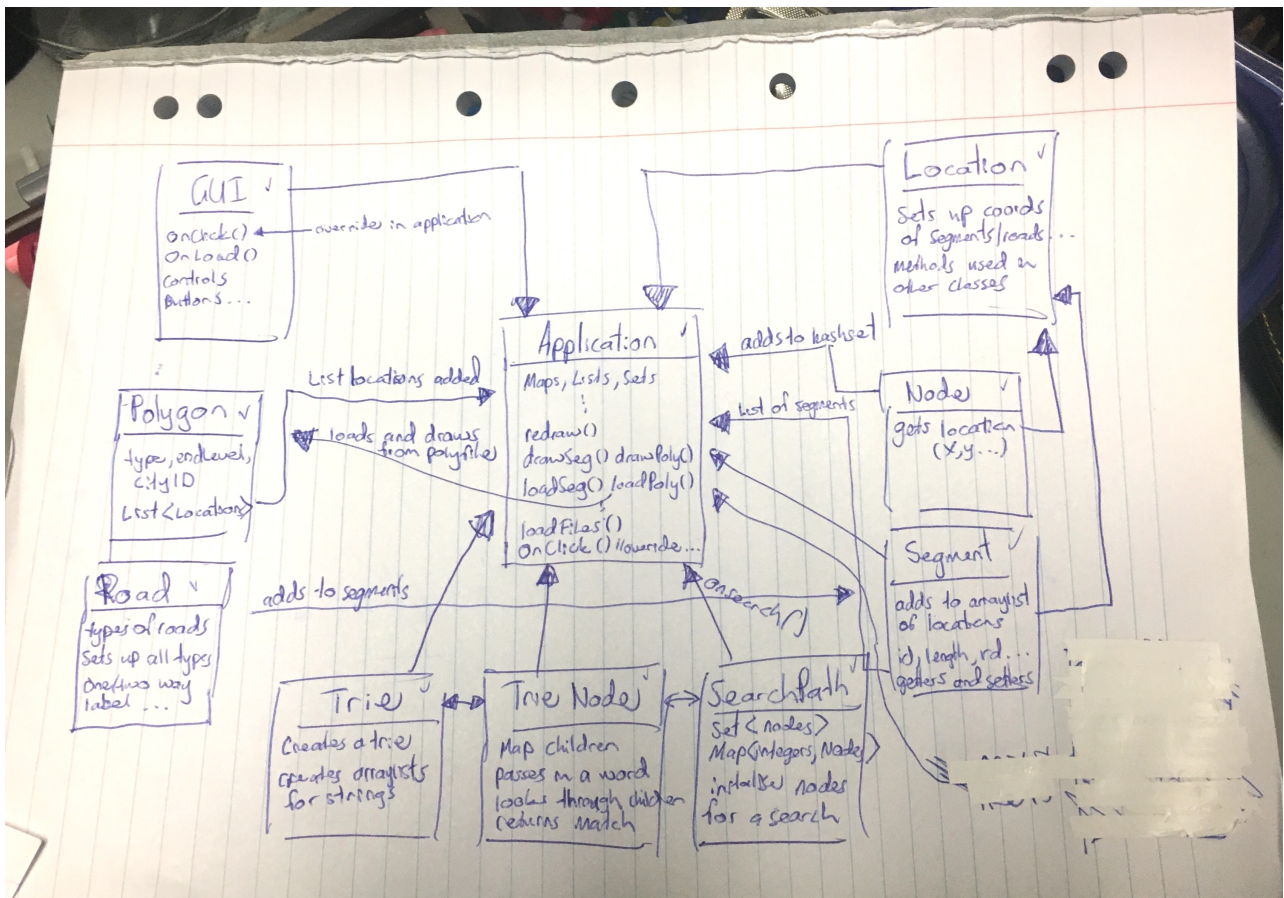 GUI
onClick()
OnLoad()
controls
Buttons...
overrides in application
Location
Sets up coords
of segments/roads...
methods used in
other classes
Application
Maps, Lists, Sets
redraw()
drawSeg() drawPoly()
loadSeg() loadPoly()
loadFiles()
onClick() //override...
adds to hashset
List of segments
Node
gets location
(x,y...)
List locations added
loads and draws
from polyfile
Polygon
type, endlevel,
cityID
List<Location>
Segment
adds to arraylist
of locations
id, length, rd...
getters and setters
Road
types of roads
Sets up all types
One/two way
label ...
adds to segments
onsearch()
Trie
Creates a trie
creates arraylists
for strings
Trie Node
Map children
passes in a word
looks through children
returns match
SearchPath
Set<nodes>
Map<integers, Node>
initialise nodes
for a search